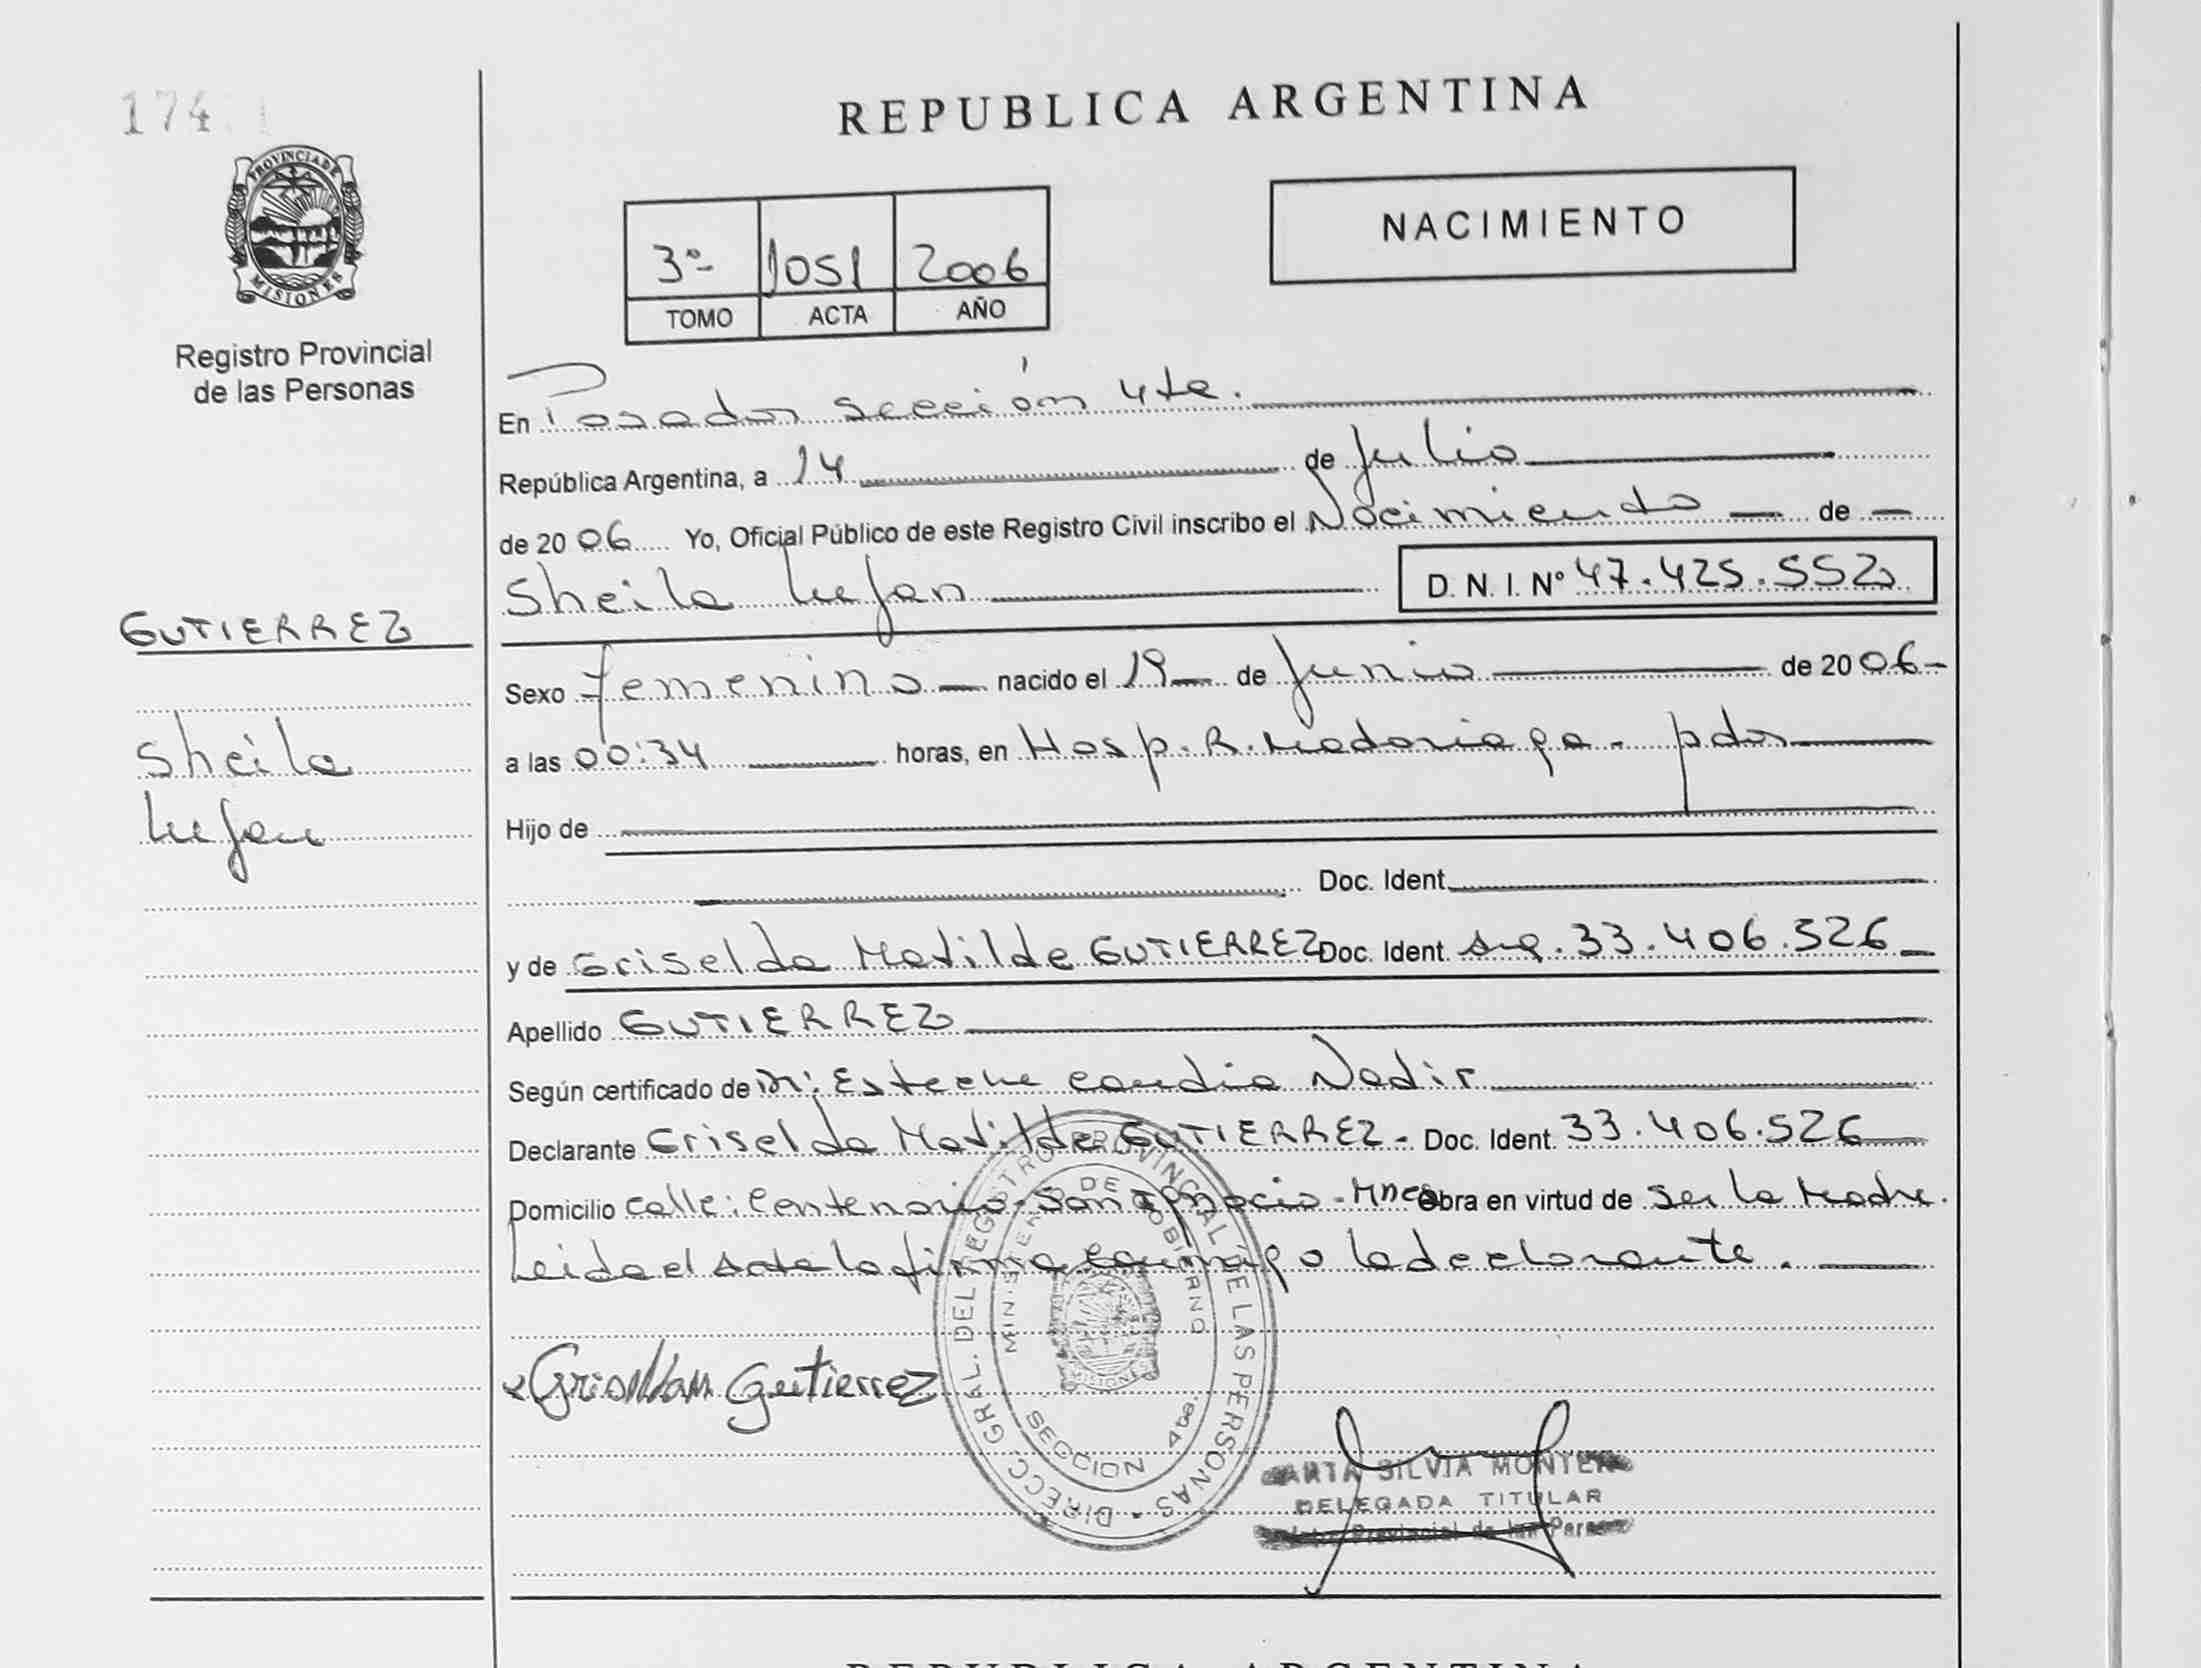 174
PROVINCIA DE
MISIONES
Registro Provincial
de las Personas
GUTIERREZ
Sheila
Lujan
REPUBLICA ARGENTINA
NACIMIENTO
3º 1051 2006
TOMO ACTA AÑO
En Posadas sección 4ta.
República Argentina, a 14 de Julio
de 2006 Yo, Oficial Público de este Registro Civil inscribo el Nacimiento de
Sheila Lujan D. N. I. Nº 47.425.552
Sexo femenino nacido el 19 de Junio de 2006
a las 00:34 horas, en Hosp. R. Madariaga - pdas
Hijo de
Doc. Ident.
y de Griselda Matilde GUTIERREZ Doc. Ident. arg. 33.406.526
Apellido GUTIERREZ
Según certificado de Esteche Nadir
Declarante Griselda Matilde GUTIERREZ - Doc. Ident. 33.406.526
Domicilio calle: Centenario - San Ignacio - Mnes Obra en virtud de ser la Madre.
Leida el Acta la firma conmigo la declarante.
DIRECC. GRAL. DEL REGISTRO PROVINCIAL DE LAS PERSONAS
MINISTERIO DE GOBIERNO
SECCION 4ta.
Gutierrez
SILVIA
DELEGADA TITULAR
Provincial de las
REPUBLICA ARGENTINA